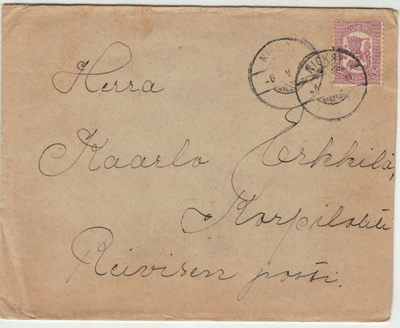 Herra
Kaarlo Erkkilä,
Korpilahti
posti.
NICKBY